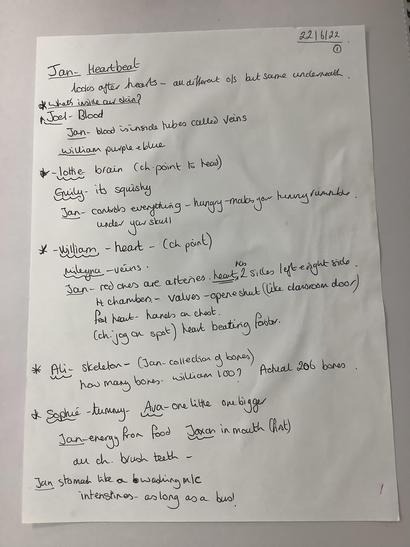 22/6/22
①
Jan - Heartbeat
looks after hearts - all different o/s but same underneath.
* What's inside our skin?
Joel - Blood
Jan - blood is inside tubes called veins
William purple + blue
* - lottie brain (ch. point to head)
Emily - its squishy
Jan - controls everything - hungry - makes your tummy rumble.
under your skull
* - William - heart - (ch point)
- veins.
Jan - red ones are arteries. heart has 2 sides left + right side.
4 chambers - valves - open + shut (like classroom door)
feel heart - hands on chest.
(ch. jog on spot) heart beating faster.
* Ali - skeleton - (Jan - collection of bones)
how many bones - william 100? Actual 206 bones.
* Sophie - tummy - Ava - one little one bigger
Jan - energy from food Jaxon in mouth (first)
all ch. brush teeth -
Jan stomach like a washing m/c
intenstines - as long as a bus!